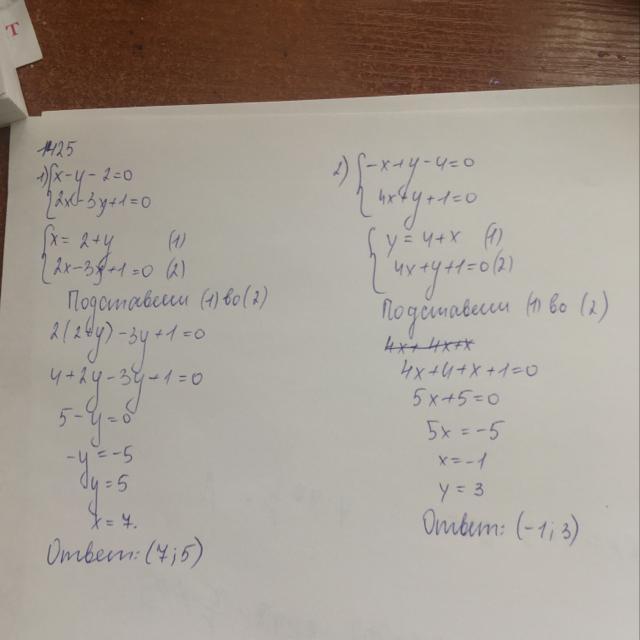 Т
1425
1) {x-y-2=0
{2x-3y+1=0
{x=2+y (1)
{2x-3y+1=0 (2)
Подставили (1) во (2)
2(2+y)-3y+1=0
4+2y-3y+1=0
5-y=0
-y=-5
y=5
x=7.
Ответ: (7;5)
2) {-x+y-4=0
{4x+y+1=0
{y=4+x (1)
{4x+y+1=0 (2)
Подставили (1) во (2)
4x+4x+x
4x+4+x+1=0
5x+5=0
5x=-5
x=-1
y=3
Ответ: (-1;3)